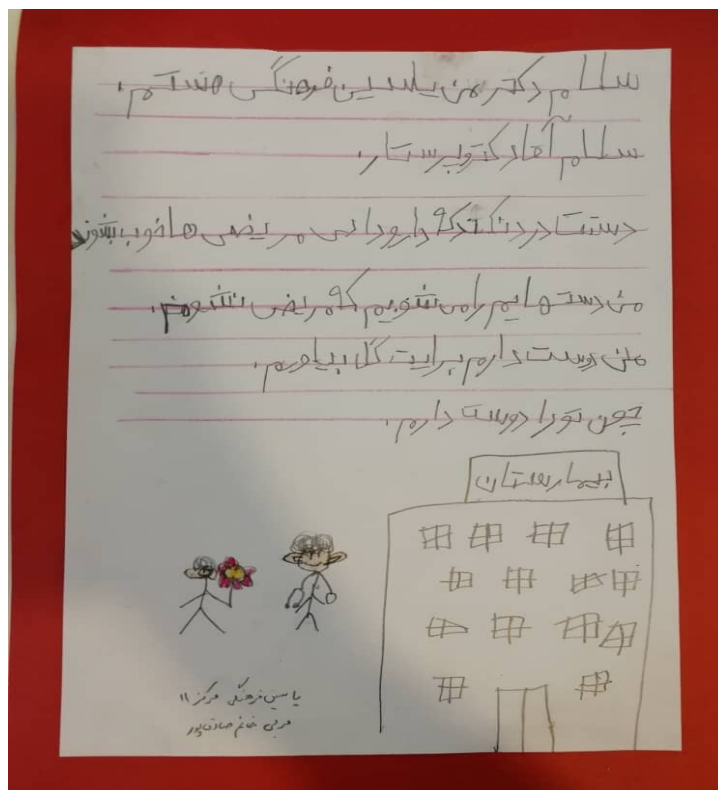 سلام دکتر من یاسین فرهنگی هستم.
سلام آقا دکتر و پرستار.
دستت درد نکند که دارو دادی مریض ها خوب بشوند
من دست هایم را می شویم که مریض نشوم.
من دوست دارم برایت گل بیاورم.
چون تو را دوست دارم.
بیمارستان
یاسین فرهنگی مرکز ۱۱
مربی خانم صادق پور